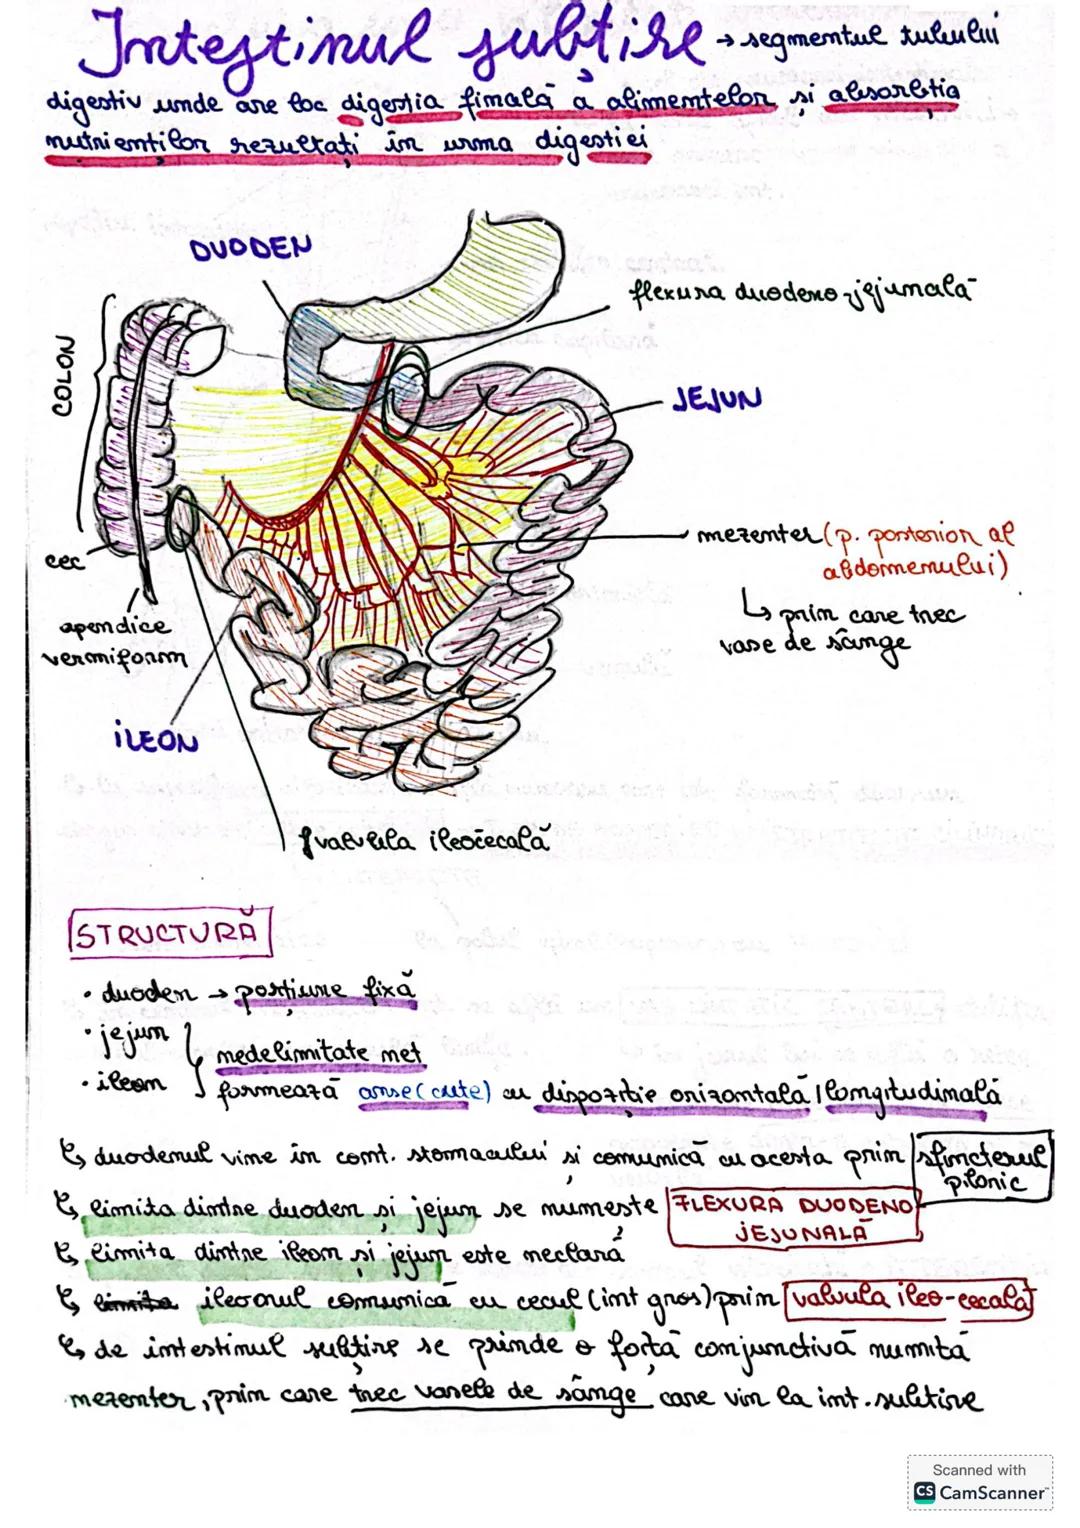 Intestinul subțire → segmentul tubului
digestiv unde are loc digestia finală a alimentelor și absorbția
nutrienților rezultați în urma digestiei
DUODEN
flexura duodeno-jejunală
COLON
JEJUN
mezenter (p. posterior al
abdomenului)
↳ prin care trec
vase de sânge
cec
apendice
vermiform
ILEON
valvula ileocecală
STRUCTURĂ
• duoden → porțiune fixă
• jejun
nedelimitate net
• ileon
formează anse (cute) cu dispoziție orizontală / longitudinală
↳ duodenul vine în cont. stomacului și comunică cu acesta prin sfincterul
piloric
↳ limita dintre duoden și jejun se numește FLEXURA DUODENO
JEJUNALĂ
↳ limita dintre ileon și jejun este neclară
↳ limita ileonul comunică cu cecul (int gros) prin valvula ileo-cecală
↳ de intestinul subțire se prinde o forță conjunctivă numită
mezenter, prin care trec vasele de sânge care vin la int. subțire
Scanned with
CS CamScanner